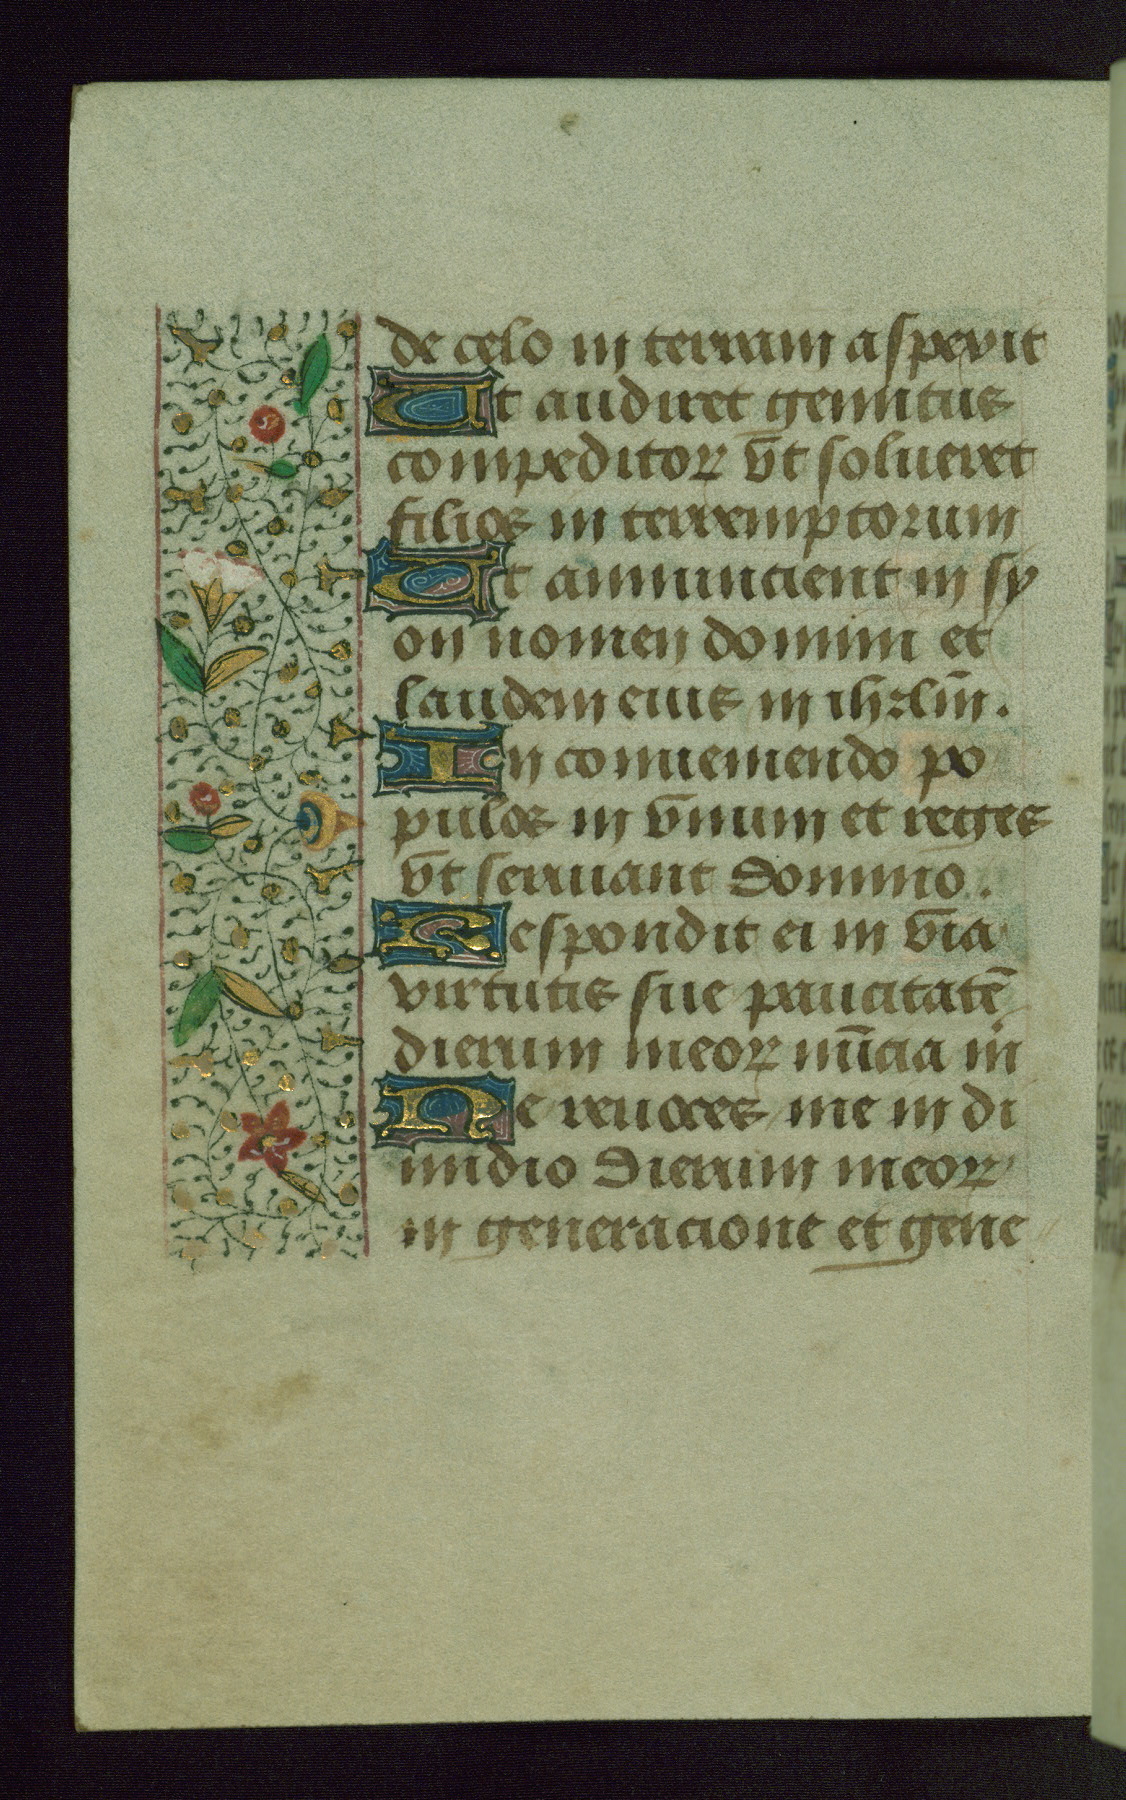 de celo in terram aspexit
Ut audiret gemitus
compeditoꝝ v̄t solueret
filios in terremptorum
Ut annuncient in sy
on nomen domini et
laudem eius in ihrl̄m.
In conueniendo po
pulos in v̄num et reges
v̄t seruiant domino.
Respondit ei in v̄ia
virtutis sue paucitatē
dierum meoꝝ nūcia m̄
Ne reuoces me in di
midio dierum meoꝝ
in generacione et gene